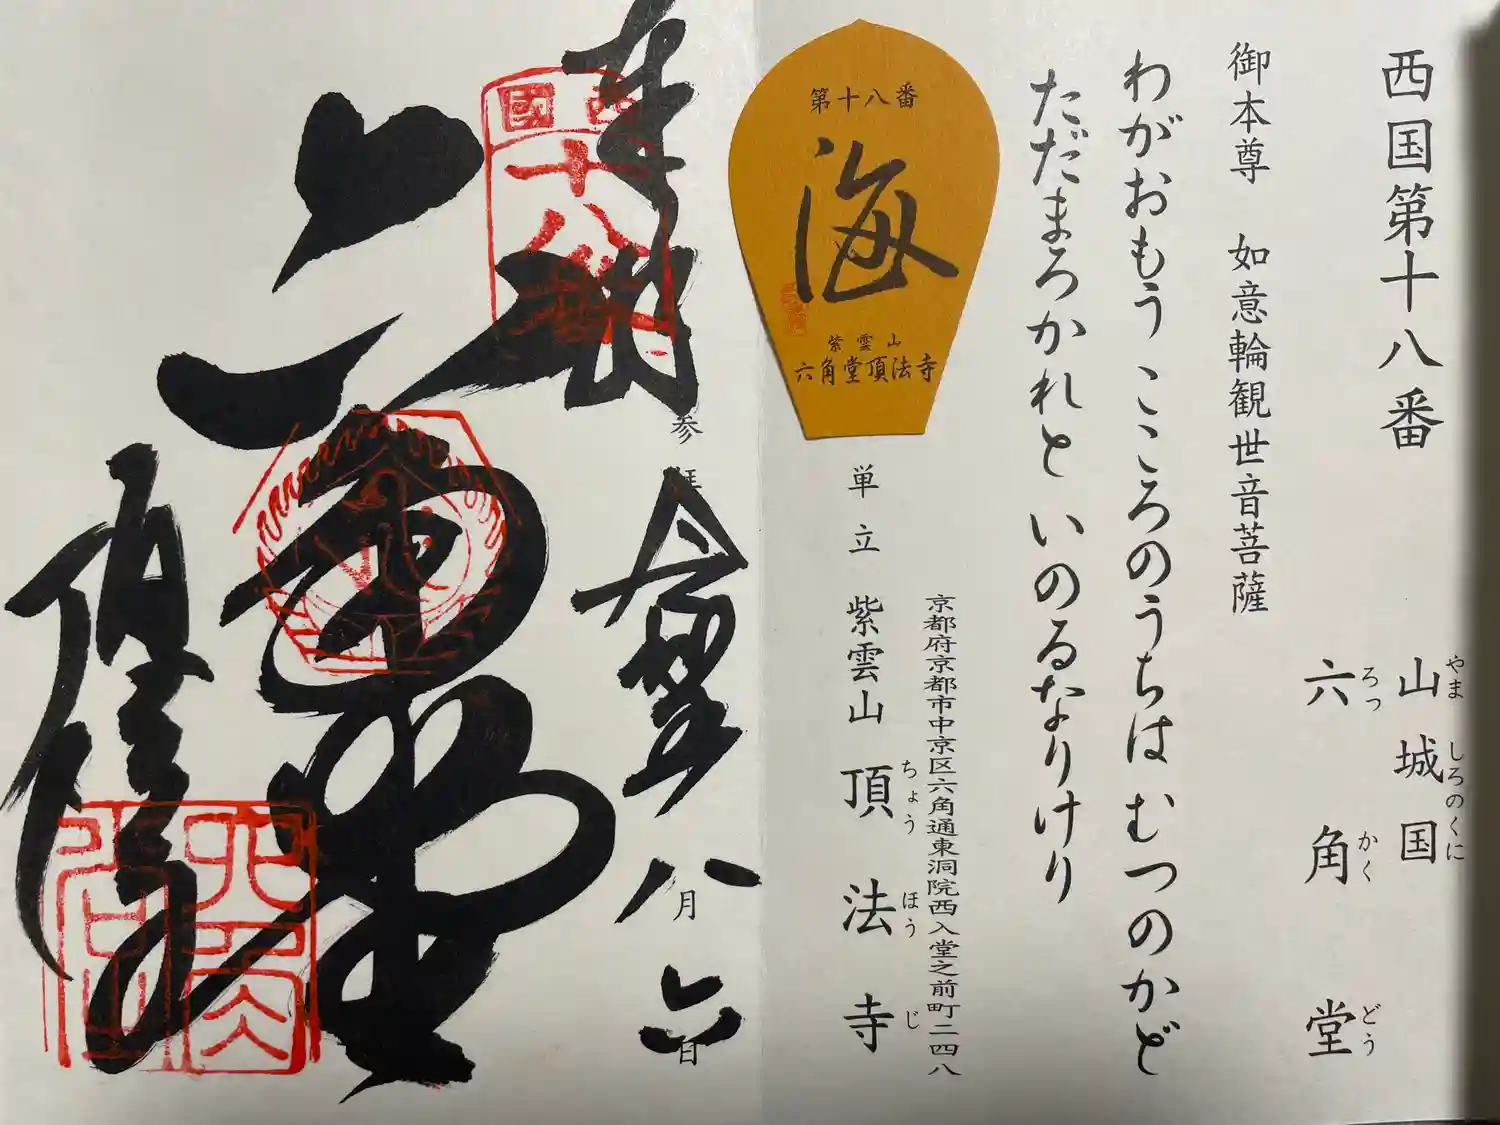 西国第十八番
山城国
やましろのくに
六角堂
ろっかくどう
御本尊 如意輪観世音菩薩
わがおもう こころのうちは むつのかど
ただまろかれと いのるなりけり
京都府京都市中京区六角通東洞院西入堂之前町二四八
単立 紫雲山 頂法寺
ちょうほうじ
第十八番
海
紫雲山
六角堂頂法寺
奉拝
西國
十八番
参拝
八月六日
六角堂